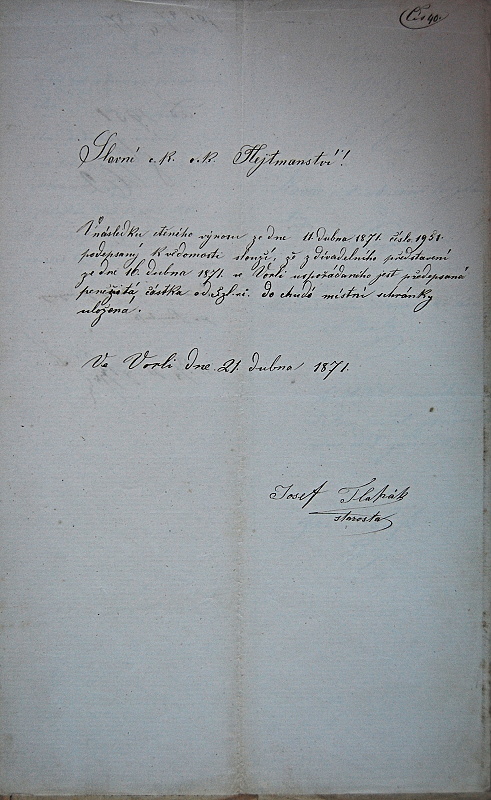 Čís 90.
Slavní c. k. o. k. Hejtmanství!
V následku cteného výnosu ze dne 11. dubna 1871. číslo 1951.
podepsaný k vědomosti slouží, že z divadelního představení
ze dne 16. dubna 1871. ve Vorlí uspořádaného jest předepsaná
peněžitá částka od 2zl. do chudé místní schránky
uložena.
Ve Vorlí dne 21. dubna 1871.
Josef Tlapák
starosta